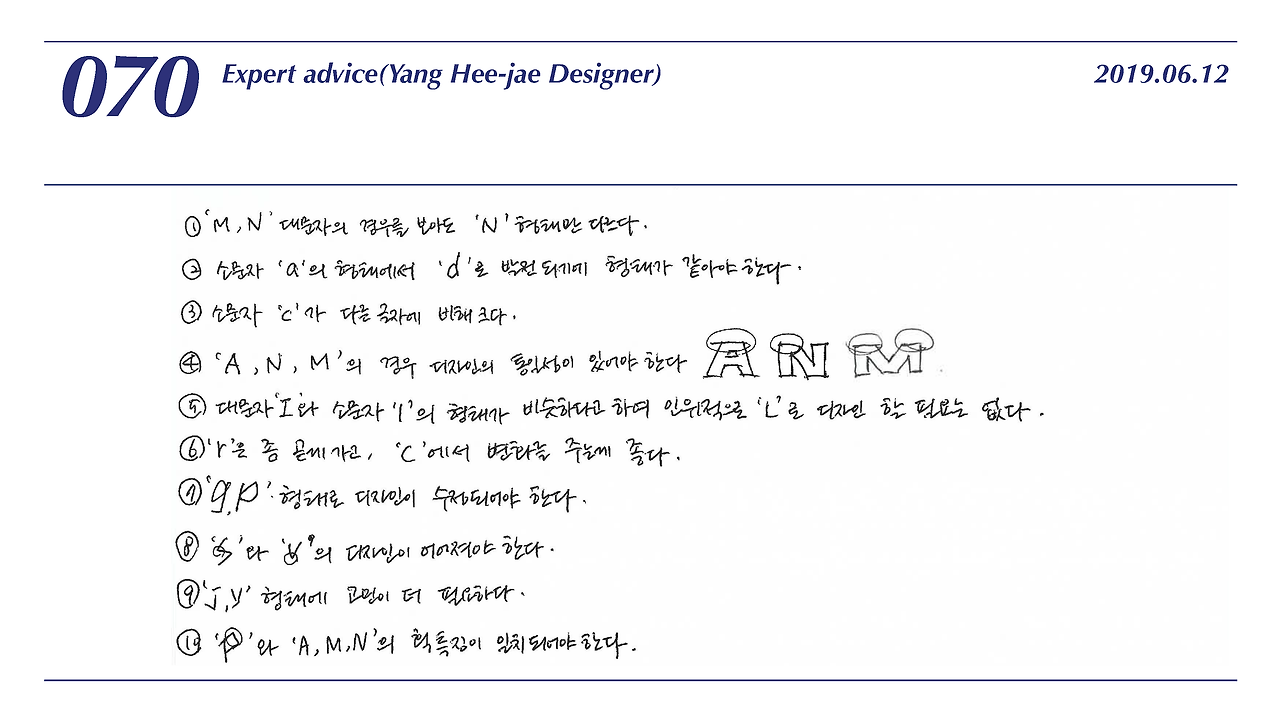 070
Expert advice(Yang Hee-jae Designer)
2019.06.12
① 'M, N' 대문자의 경우를 보아도 'N' 형태만 다르다.
② 소문자 'a'의 형태에서 'd'로 발전 되기에 형태가 같아야 한다.
③ 소문자 'c'가 다른 글자에 비해 크다.
④ 'A, N, M'의 경우 디자인의 통일성이 있어야 한다 A N M
⑤ 대문자 'I'와 소문자 'l'의 형태가 비슷하다고 하여 인위적으로 'L'로 디자인 할 필요는 없다.
⑥ 'r'은 좀 곧게 가고, 'c'에서 변화를 주는게 좋다.
⑦ 'g, p' 형태로 디자인이 수정되어야 한다.
⑧ 와 의 디자인이 이어져야 한다.
⑨ 'j, y' 형태에 고민이 더 필요하다.
⑩ 'p'와 'A, M, N'의 획 특징이 일치되어야 한다.